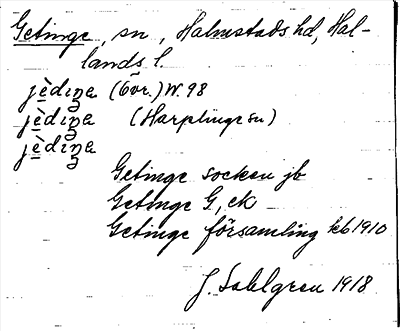 Getinge, sn, Halmstads hd, Hal-
lands l.
jèdiŋa (Övr.) W. 98
jèdiŋa (Harplinge sn)
jèdiŋa
Getinge socken jb
Getinge G, ek
Getinge församling kb 1910
J. Sahlgren 1918